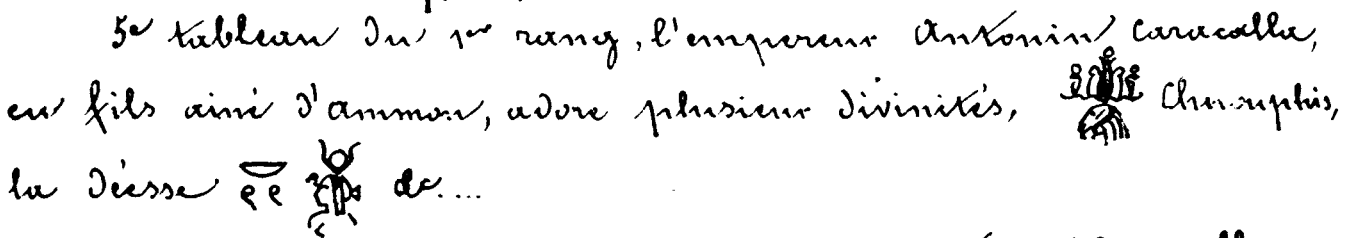 5e tableau du 1er rang, l'empereur Antonin Caracalla,
en fils ainé d'Ammon, adore plusieur divinités, Chnouphis,
la déesse &c....